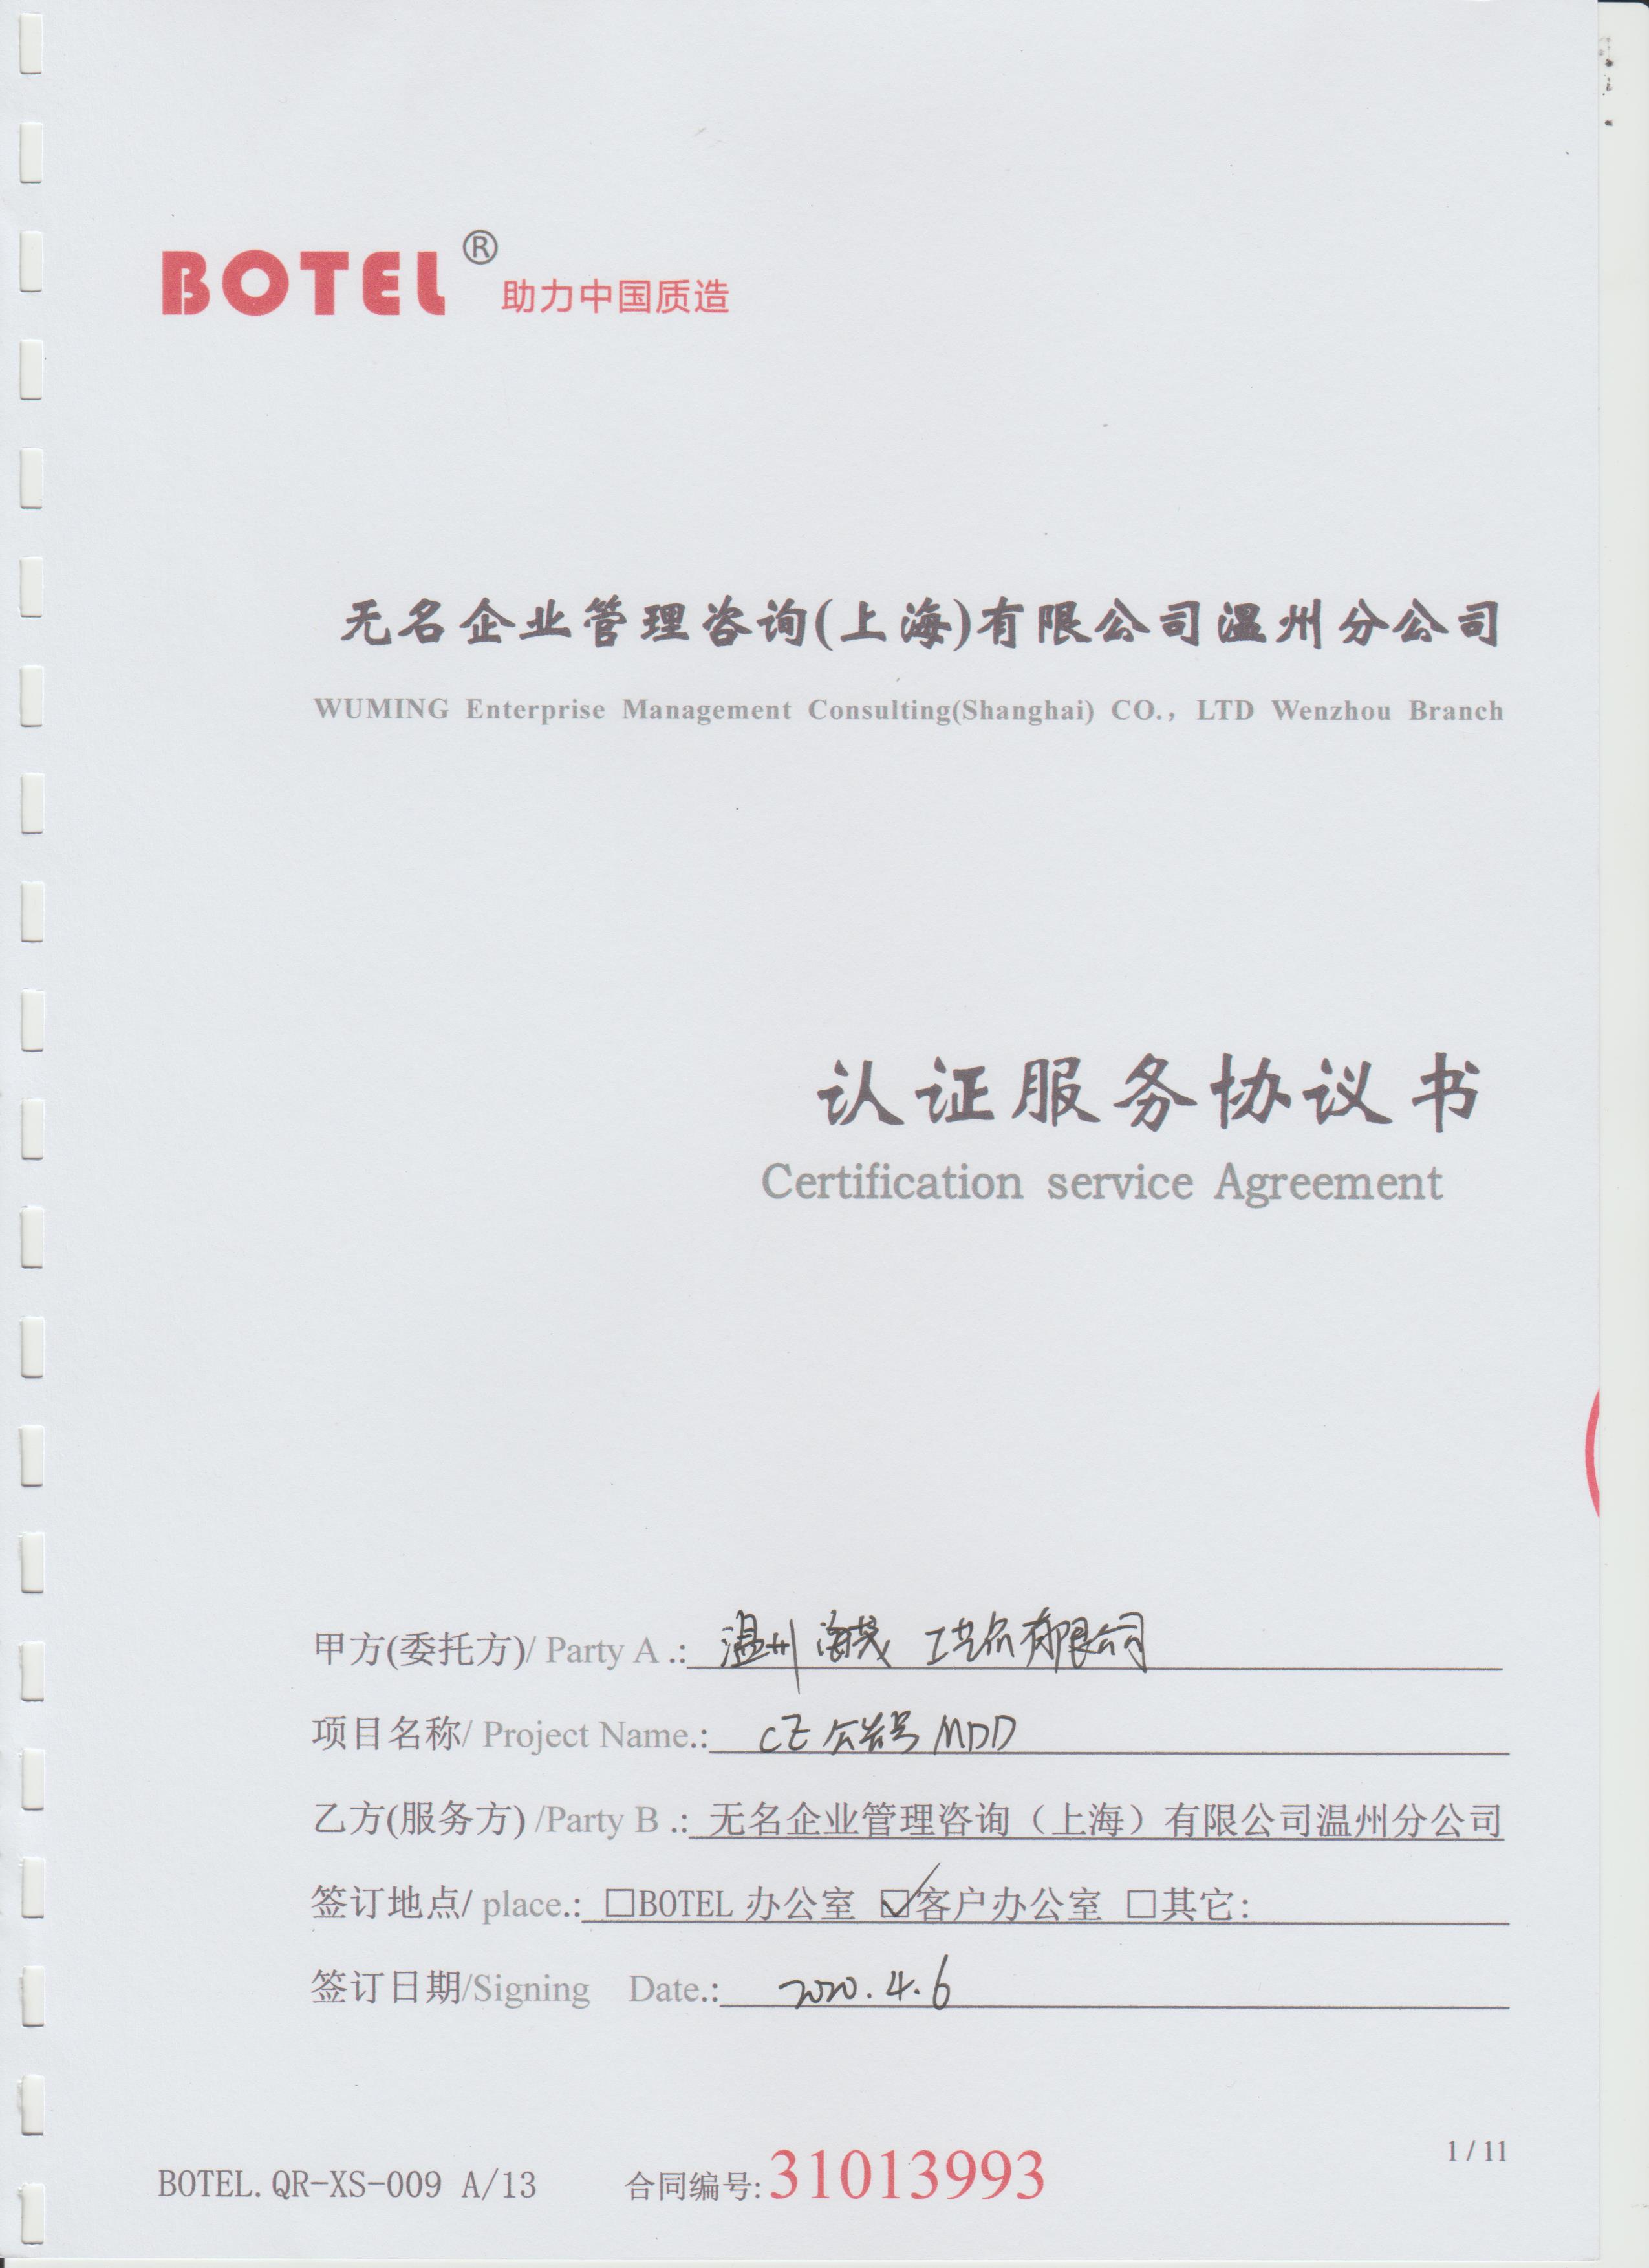 BOTEL® 助力中国质造
无名企业管理咨询(上海)有限公司温州分公司
WUMING Enterprise Management Consulting(Shanghai) CO., LTD Wenzhou Branch
认证服务协议书
Certification service Agreement
甲方(委托方)/ Party A .: 温州海茂工艺品有限公司
项目名称/ Project Name.: CE 公告号 MDD
乙方(服务方) /Party B .: 无名企业管理咨询（上海）有限公司温州分公司
签订地点/ place.: □BOTEL 办公室 ☑客户办公室 □其它:
签订日期/Signing Date.: 2020.4.6
1 / 11
BOTEL.QR-XS-009 A/13 合同编号: 31013993